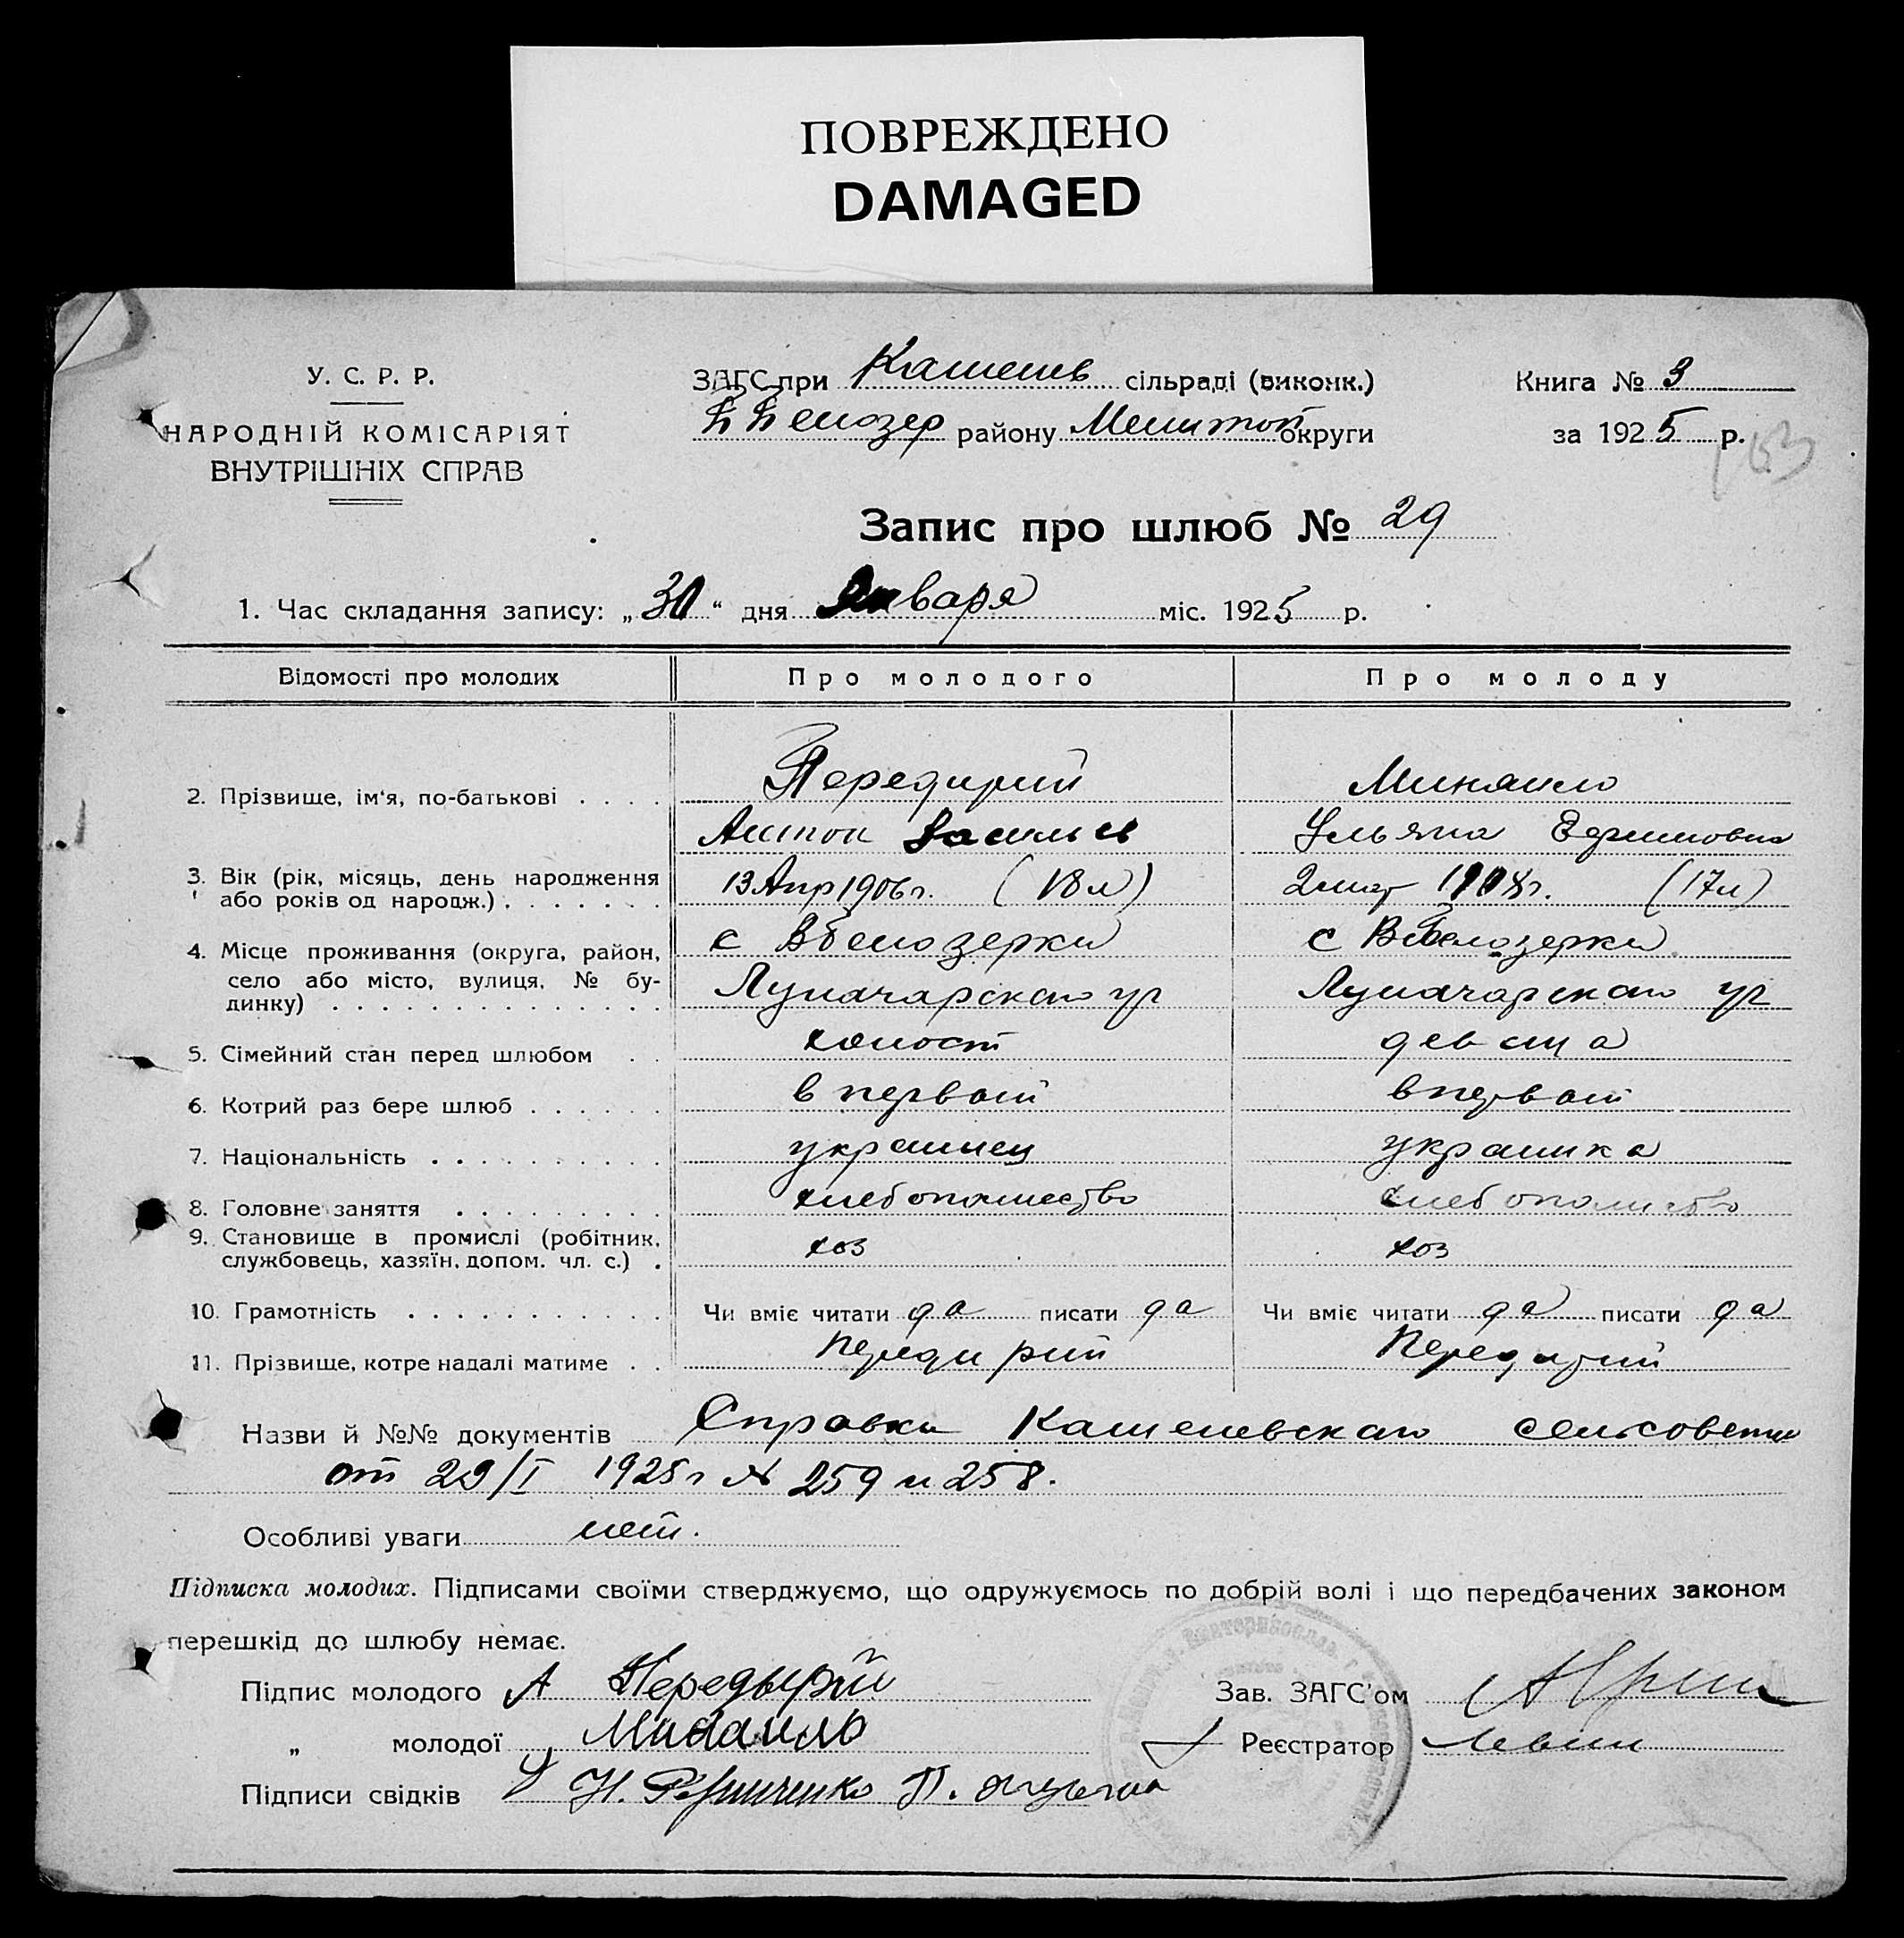 ПОВРЕЖДЕНО
DAMAGED
У. С. Р. Р.
НАРОДНІЙ КОМІСАРІЯТ
ВНУТРІШНІХ СПРАВ
ЗАГС при сільраді (виконк.)
району Мелитоп округи
Книга № 3
за 1925 р.
Запис про шлюб № 29
1. Час складання запису: „30“ дня Января міс. 1925 р.
Відомості про молодих Про молодого Про молоду
2. Прізвище, ім'я, по-батькові . . . . Передирий Минаило
Антон Васильев Ульяна Ефимовна
3. Вік (рік, місяць, день народження або років од народж.) . . . . . . . 13 Апр 1906 г. (18 л) (17 л)
4. Місце проживання (округа, район, село або місто, вулиця, № будинку) . . . . . . . . . . . . . . с Вбелозерки с Вбелозерки
Луначарскаго Луначарскаго
5. Сімейний стан перед шлюбом . . холост девица
6. Котрий раз бере шлюб . . . . . . в первый впервый
7. Національність . . . . . . . . . . украинец украинка
8. Головне заняття . . . . . . . . . хлебопашество хлебопашество
9. Становище в промислі (робітник, службовець, хазяїн, допом. чл. с.) . хоз хоз
10. Грамотність . . . . . . . . . . . Чи вміє читати да писати да Чи вміє читати да писати да
11. Прізвище, котре надалі матиме . . Передирий Передирий
Назви й №№ документів Справки сельсовета
от 29/I 1925 г № 259 и 258.
Особливі уваги нет.
Підписка молодих. Підписами своїми стверджуємо, що одружуємось по добрій волі і що передбачених законом
перешкід до шлюбу немає.
Підпис молодого А Передырий Зав. ЗАГС'ом
„ молодої Минаило Реєстратор Левин
Підписи свідків Н. П.